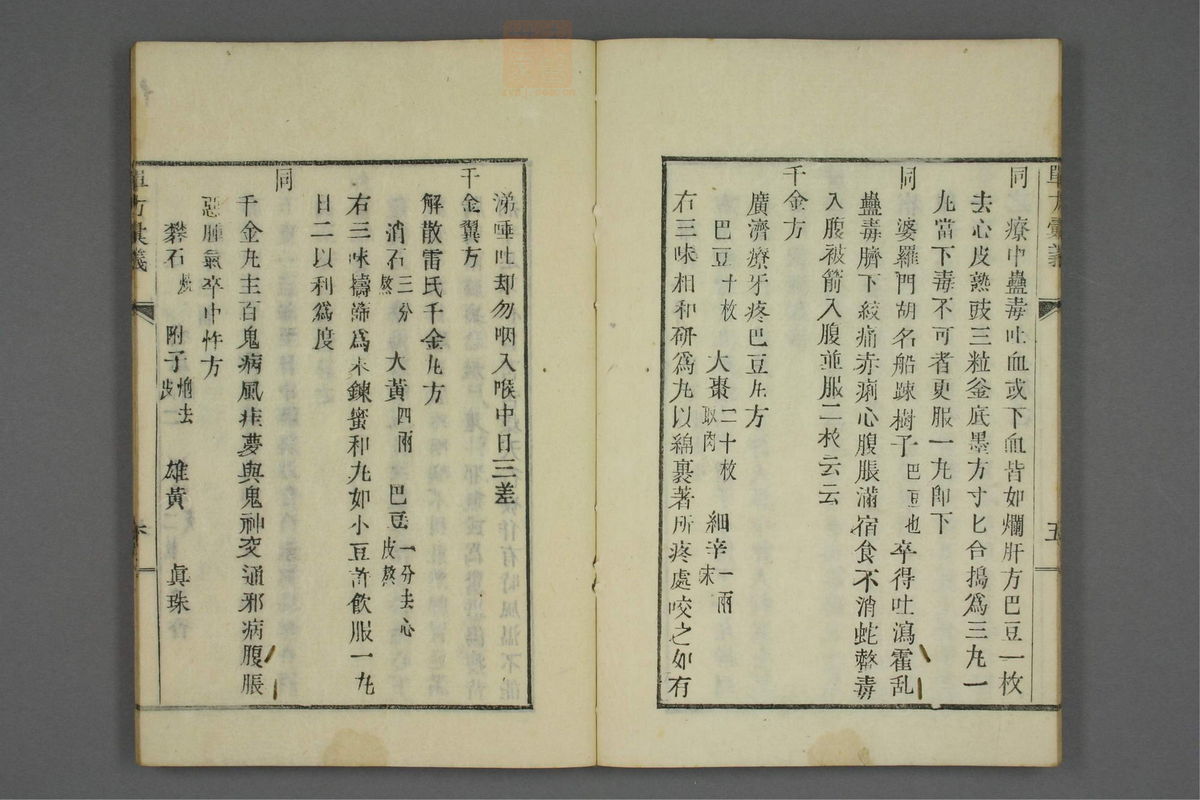 單方彙義
五
同
療中蠱毒吐血或下血皆如爛肝方巴豆一枚
去心皮熟豉三粒釜底墨方寸匕合搗爲三丸一
丸當下毒不可者更服一丸卽下
同
婆羅門胡名船疎樹子巴豆也卒得吐瀉霍乱
蠱毒臍下絞痛赤痢心腹脹滿宿食不消蛇螫毒
入腹被箭入腹並服二枚云云
千金方
廣濟療牙疼巴豆丸方
巴豆十枚 大棗二十枚取肉 細辛一兩末
右三味相和硏爲丸以綿裹著所疼處咬之如有
涕唾吐却勿咽入喉中日三差
千金翼方
解散雷氏千金丸方
消石三分熬 大黃四兩 巴豆一分去心皮熬
右三味擣篩爲末鍊蜜和丸如小豆許飮服一丸
日二以利爲度
同
千金丸主百鬼病風疰夢與鬼神交通邪病腹脹
惡腫氣卒中忤方
礬石 附子炮去皮 雄黃 眞珠
單方彙義